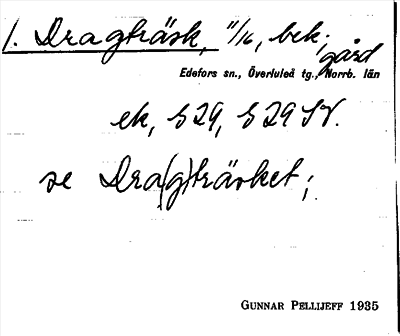 1. Dragträsk, 11/16, bek.;
gård
Edefors sn., Överluleå tg., Norrb. län
ek, §29, §29 SV.
se Dra(g)träsket;
GUNNAR PELLIJEFF 1935